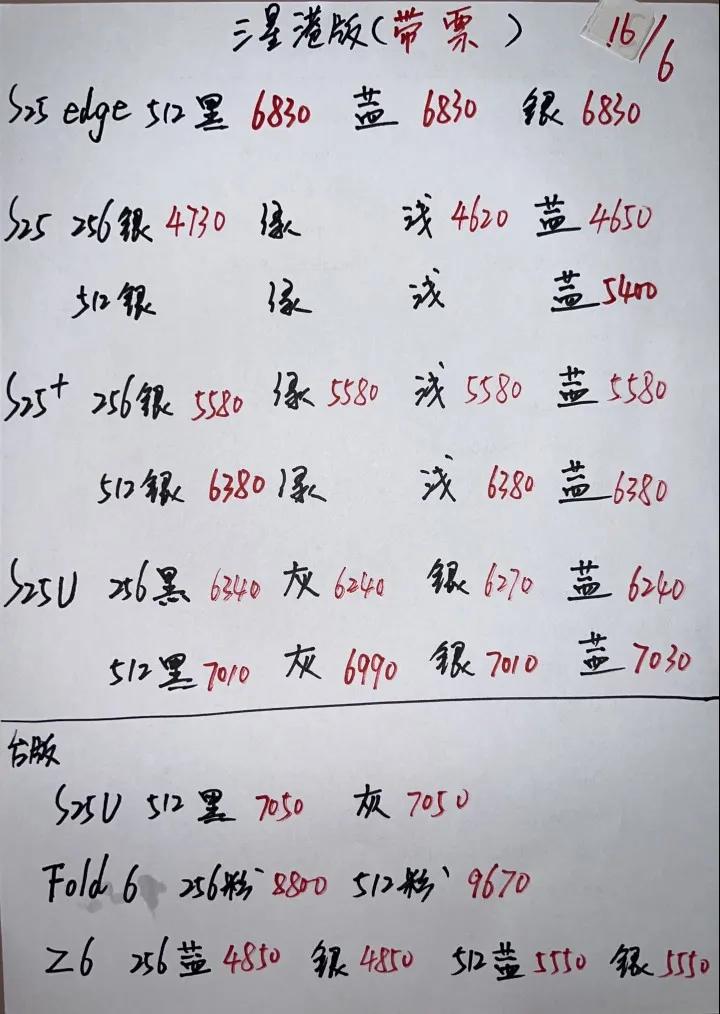 三星港版(带票) 16/6
S25 edge 512 黑 6830 蓝 6830 銀 6830
S25 256 銀 4730 绿 浅 4620 蓝 4650
512 銀 绿 浅 蓝 5400
S25+ 256 銀 5580 绿 5580 浅 5580 蓝 5580
512 銀 6380 绿 浅 6380 蓝 6380
S25U 256 黑 6340 灰 6240 銀 6270 蓝 6240
512 黑 7010 灰 6990 銀 7010 蓝 7030
台版
S25U 512 黑 7050 灰 7050
Fold 6 256 粉 8800 512 粉 9670
Z6 256 蓝 4850 銀 4850 512 蓝 5550 銀 5550